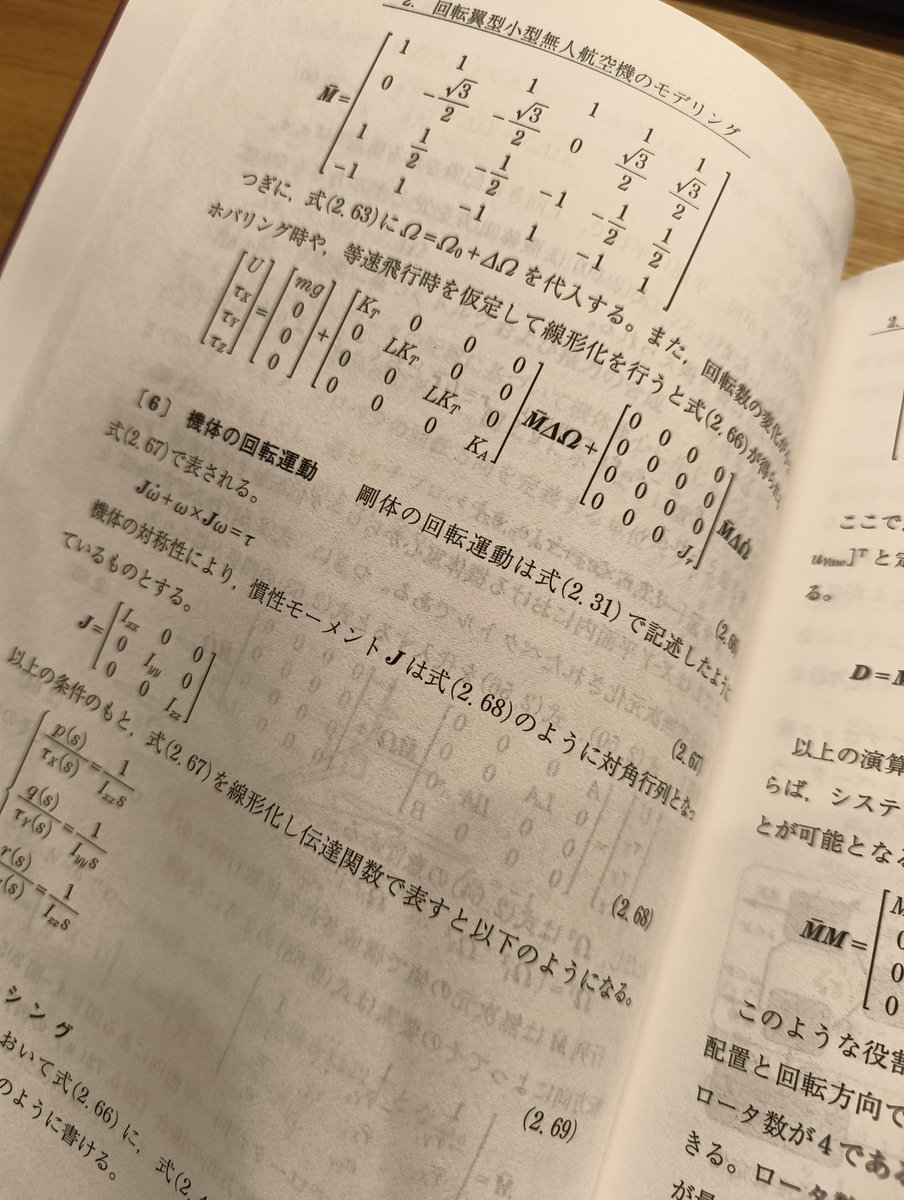 2. 回転翼型小型無人航空機のモデリング
M̄ = [1 1 1 1 1 1
0 -√3/2 -√3/2 0 √3/2 √3/2
1 1/2 -1/2 -1 -1/2 1/2
-1 1 -1 1 -1 1]
つぎに，式(2.63)に Ω=Ω₀+ΔΩ を代入する。また，回転数の変化が
ホバリング時や，等速飛行時を仮定して線形化を行うと式(2.66)が得られる。
[U τX τY τZ] = [mg 0 0 0] + [KT 0 0 0
0 LKT 0 0
0 0 LKT 0
0 0 0 KA] M̄ΔΩ + [0 0 0 0
0 0 0 0
0 0 0 0
0 0 0 Jr] M̄ΔΩ̇
(2.66)
〔6〕 機体の回転運動 剛体の回転運動は式(2.31)で記述したように
式(2.67)で表される。
Jω̇+ω×Jω=τ (2.67)
機体の対称性により，慣性モーメント J は式(2.68)のように対角行列となっ
ているものとする。
J = [Ixx 0 0
0 Iyy 0
0 0 Izz] (2.68)
以上の条件のもと，式(2.67)を線形化し伝達関数で表すと以下のようになる。
p(s)/τX(s) = 1/Ixx s
q(s)/τY(s) = 1/Iyy s
r(s)/(s) = 1/Izz s
(2.69)
シング
おいて式(2.66)に，式(2.
のように書ける。
2.
ここで
uyaw]ᵀ と定
る。
D=M
以上の演算
らば，システ
とが可能とな
M̄M = [M
0
0
0
このような役割
配置と回転方向で
ロータ数が4であ
きる。ロータ